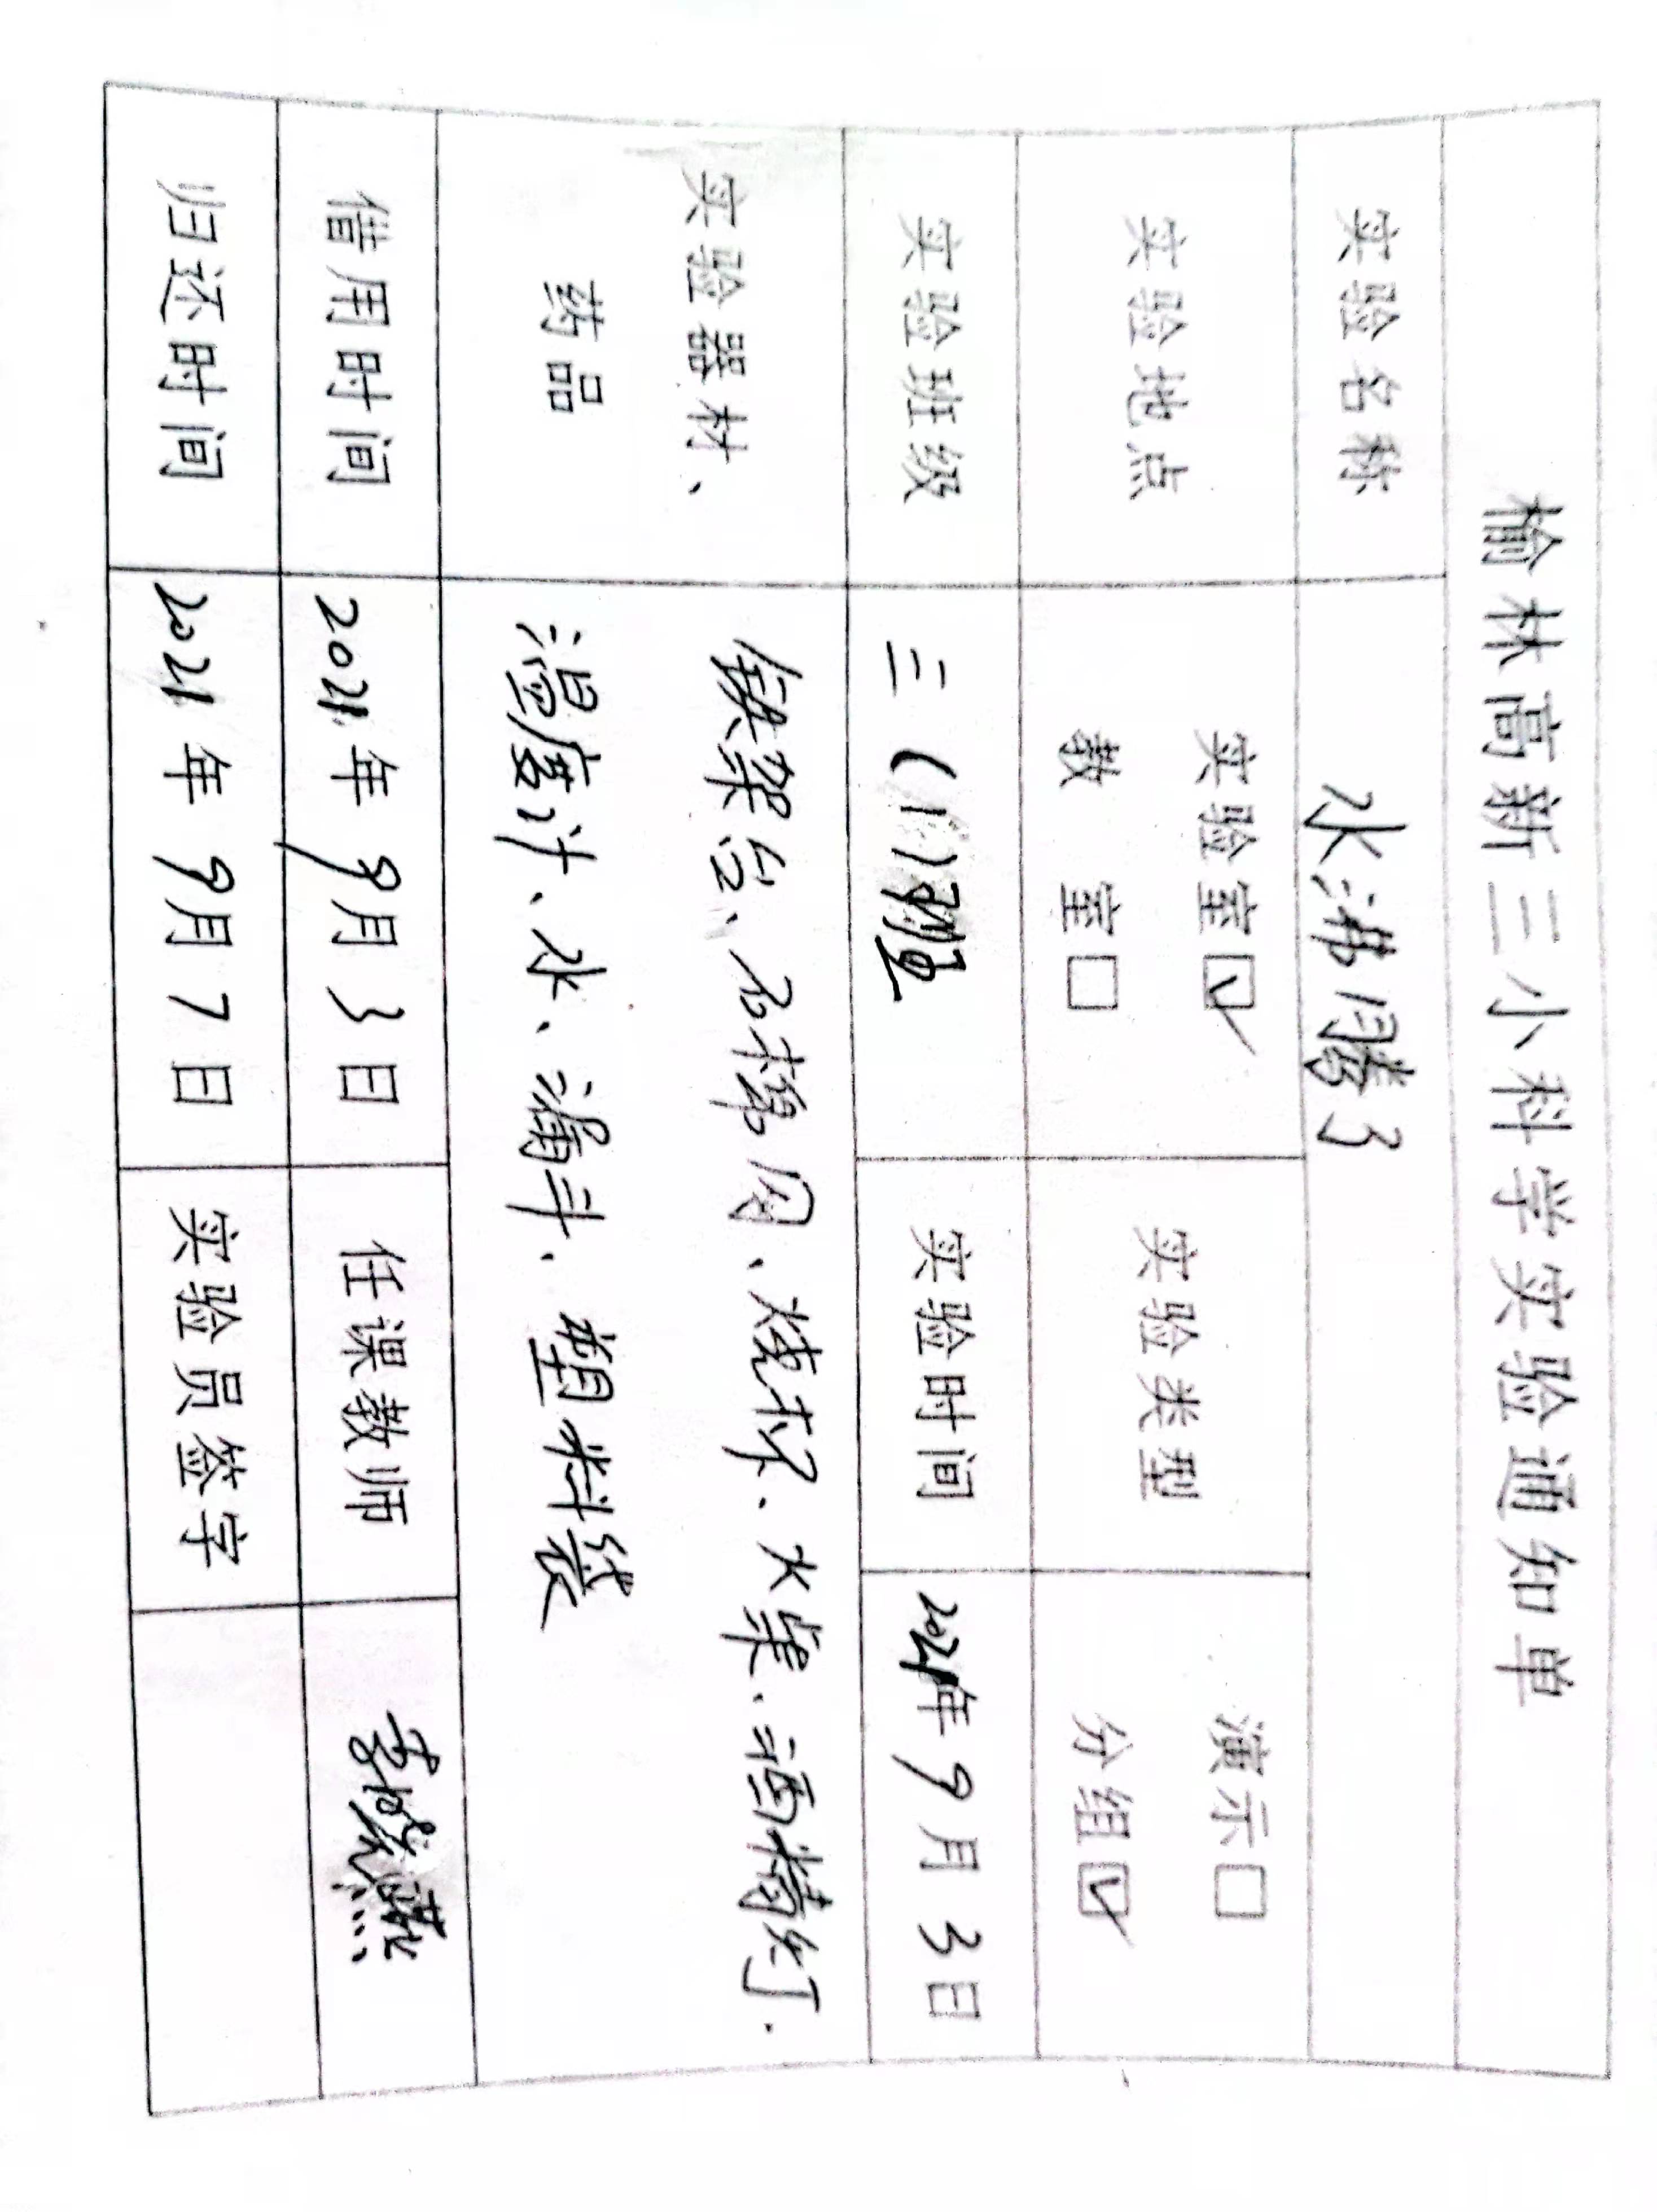 榆林高新三小科学实验通知单
实验名称 水沸腾了
实验地点 实验室☑ 教 室□ 实验类型 演示□ 分组☑
实验班级 三(1)班 实验时间 2021年9月3日
实验器材、药品 铁架台、石棉网、烧杯、火柴、酒精灯.
温度计、水、漏斗、塑料袋
借用时间 2021年9月3日 任课教师 李 燕
归还时间 2021年9月7日 实验员签字